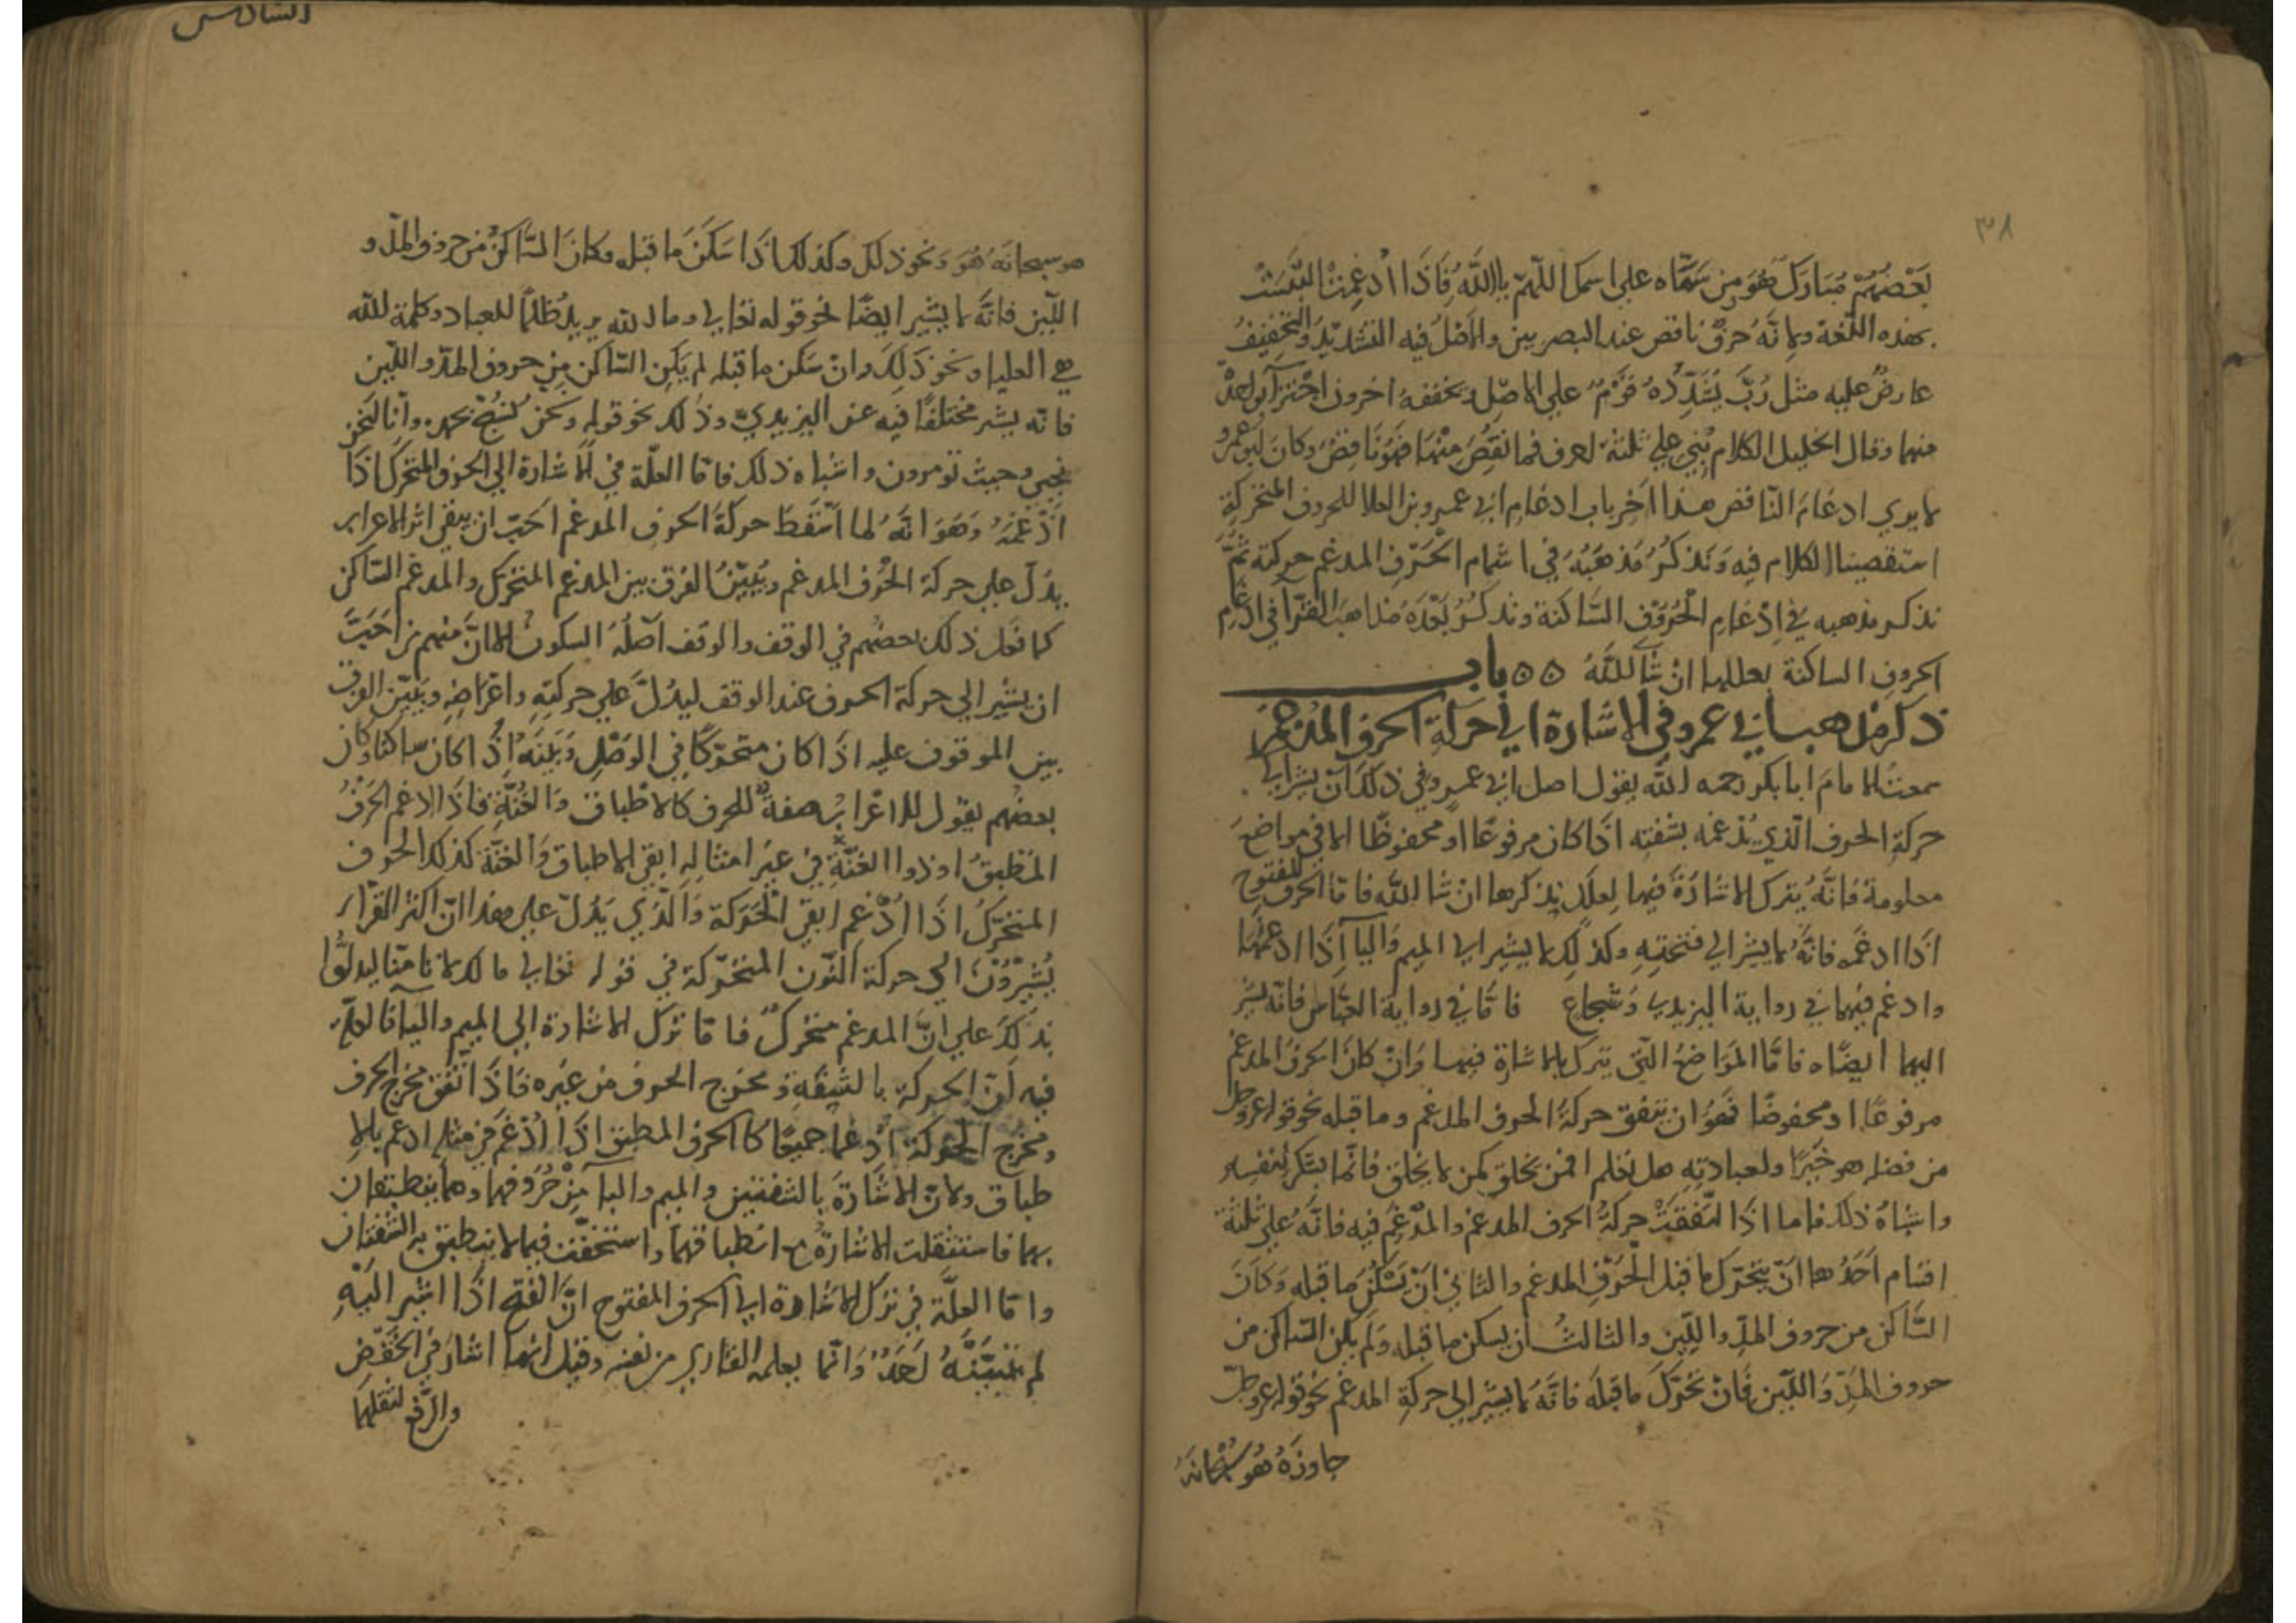 ٣٨
بَعْضُهُمْ مُبَارَك هُوَ مِن سَمَّاه على اسمك اللّهمّ يا اللَّهُ فَاِذَا ادْغِمَتْ التبسَتْ
بهذه اللّغة ولانّهُ حرْف ناقص عند البصريين والاصْلُ فيه التشديدُ والتخفيفُ
عارضٌ عليه مثل رُبَّ يُشَدِّدُهُ قَوْمٌ على الاصْل ويخففهُ اخرون اجْتزآءً بواحدٍ
منهما وقال الخليل الكلام بُنِيَ على ثلثة احرف فما نقصَ منها فهُوَ ناقِصٌ وكان ابو عمرو
لا يري ادغامَ النّاقص هذا اخر باب ادغام ابي عمرو بن العلا للحروف المتحركةِ
استقصينا الكلام فيه وَنذكرُ مَذهَبَهُ في اشمام الْحَرفِ المدغم حركته ثُمَّ
نذكر مذهبه في ادْغامِ الْحُرُوفِ السَّاكنة ونذكرُ بَعْدَهُ مذاهبَ القرّا في ادْغامِ
الحروفِ الساكنة بعللها انْ شآ اللَّهُ ٥٥ باب
ذكر مذهب ابي عمرو في الاشارة الي حركةِ الحرف المدغم
سمعتُ الامامَ ابا بكر رحمه اللَّه يقول اصل ابي عمرٍو في ذلك أن يشير الي
حركةِ الحرف الّذي يُدْغمه بشفته اذا كان مرفوعًا او محفوظًا الا في مواضعَ
معلومة فانَّهُ يترك الاشارَةَ فيها لِعللٍ نذكرها انْ شا اللَّه فامّا الحرف المفتوح
اذا ادغمه فانَّهُ لا يشير الي فتحتِهِ وكذلِكَ لا يشير الي الميم وَالبآ اذا ادغمهُما
وادغم فيهما في رواية اليزيدي وَشجاع فامّا في رواية العبّاس فانّه يشير
اليهما ايضًاه فامّا المَوَاضعُ الّتي يترك الاشارة فيها وَانْ كانَ الحرفُ المدغم
مرفوعًا او محفوضًا فهُوَ ان يتفق حركةُ الحرف المدغم وما قبله نحو قوله عزّ وجلّ
من فضله هو خيرًا ولعبادتِهِ هل تعلم افمن يخلق كمن لا يخلق فانّما يشكر لنفسِه
واشباهُ ذلك فاما اذا اتّفقَتْ حركةُ الحرف المدغم والمدْغَم فيه فانّهُ على ثلثة
اقسام اَحَدُها انْ يتحرّك ما قبل الْحَرْفِ المدغم والثاني انْ يَسْكنَ ما قبله وكانَ
السَّاكن من حروف المدّ واللِّين والثالثُ أن يسكن ما قبله وَلَم يكن السّاكن من
حروف المَدّ وَاللّين فَانْ تحرّكَ ما قبلهَ فانَّهُ لا يشير الي حركةِ المدغم نحو قوله عزّ وجلّ
جاوزَهُ هُو سُبْحانَهُ
السّادس
هو سبحانَهُ هُوَ وَنحو ذلك وكذلك اذا سَكَنَ ما قبله وكانَ السَّاكنُ من حروف المدّ و
اللّين فانّهُ لا يشير ايضًا نحو قوله تعالى وما الله يريدُ ظلمًا للعباد وكلمة اللّه
هي العليا ونحو ذَلِكَ وانْ سَكن ما قبله لم يَكنِ السّاكن مِن حروف المدّ واللّين
فانّه يشير مختلَفًا فيه عن اليزيديّ وذلك نحو قوله ونحنُ نُسَبِّحُ بحمدِه وانّا لنحنُ
نُحيي وحيث تؤمرون واشباه ذلك فامّا العلّة في الاشارة الي الحرف المتحرك اذا
ادْغمَهُ وَهُوَ انّهُ لما اسْقطَ حركةَ الحرف المدغم اَحَبّ ان يبقي اثر الاعراب
يدُلّ على حركة الحْرف المدغم ويُبيّنُ الفرق بين المدغم المتحرّك والمدغم السّاكن
كما فعل ذلك بعضُهم في الوقف والوقف اَصْلُهُ السكونُ الا انَّ منهم من اَحَبَّ
ان يشير الي حركة الحرف عند الوقف ليدُلَّ على حركتِهِ واعْرَابِه ويُبيّن الفرق
بين الموقوف عليه اذا كان متحرّكًا في الوَصْلِ وَبَينَهُ اِذْا كان ساكنًا وكان
بعضُهم يقول الاعْرابُ صفةٌ للحرف كالاطْباق وَالغُنَّةِ فاذا ادغم الحَرْفُ
المُطْبَقُ او ذوا الغنّةِ في غير امثالِهِ ابقي الاطباق وَالغنّة كذلك الحرف
المتحرّكُ اذا ادْغم ابقي الْحَرَكة وَالّذي يَدُلّ على هذا انّ اكثر القرّاء
يُشِيْرُوْنَ الي حركة النّون المتحرّكة في قوله تعالى ما لك لا تامنّا ليدلُّوا
بذلِكَ على انَّ المدغم متحركٌ فامّا ترك الاشارة الي الميم والبآ فالعلّة
فيه لِانّ الحركة بالشفَةِ ومخرج الحرف من غيره فاذا اتّفق مخرج الحرف
ومخرج الحركة ادْغما جميعًا كالحرف المطبق اذا ادْغم في مثله ادغم بالا
طباق ولانّ الاشَارَةَ بالشفتين والميم والبآ مِنْ حُرُوفهما وهما ينطبقان
بهما فاستثقلت الاشارةُ مع انطباقهما واستخفّت فيما لا ينطبق به الشفتان
وامّا العلَّة في ترك الاشارة الي الحرف المفتوح انَّ الفتح اذا اشير الَيْهِ
لم يَتبيَّنهُ اَحَدٌ وَانّما يعلمه القاري من نفسه وقيل انّما اشار في الخَفْضِ
والرّفع لثقلهما